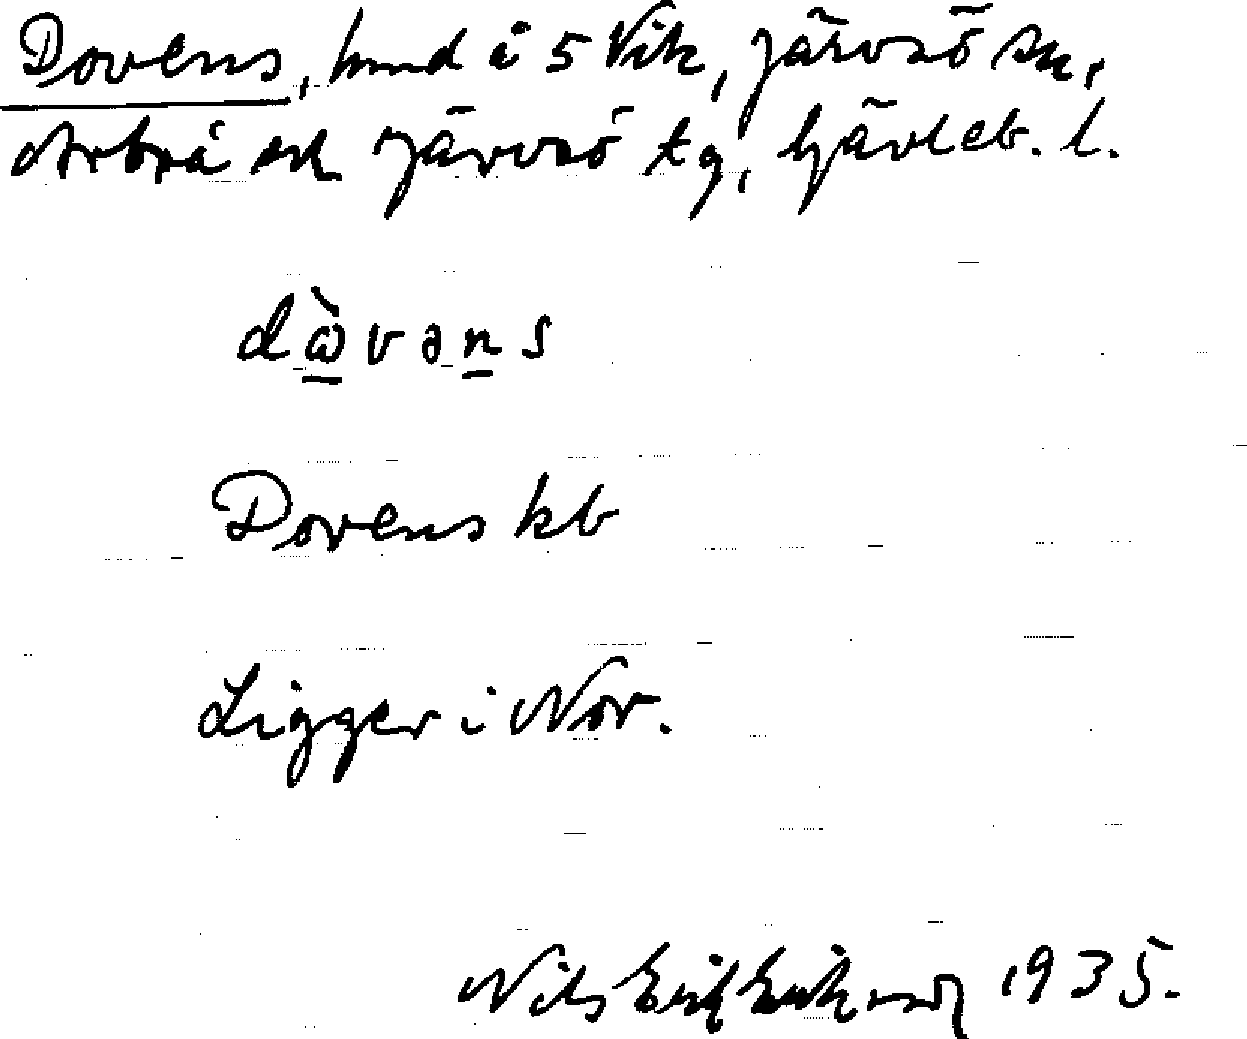 Dovens, hmd i 5 Vik, Järvsö sn,
Arbrå och Järvsö tg, Gävleb. l.
dὰ̣vəns
Dovens kb
Ligger i Nor.
Nils Erik Eriksson 1935.